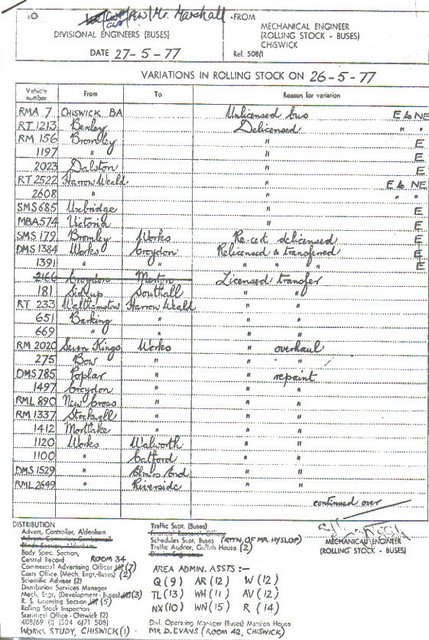 TO Mr. Marshall FROM
DIVISIONAL ENGINEERS (BUSES) MECHANICAL ENGINEER
(ROLLING STOCK - BUSES)
CHISWICK
DATE 27-5-77 Ref. 508/1
VARIATIONS IN ROLLING STOCK ON 26-5-77
Vehicle number From To Reason for variation
RMA 7 CHISWICK BA Unlicensed bus E & NE
RT 1213 Bexley Delicensed " "
RM 156 Bromley " E
1197 " " E
2023 Dalston " E
RT 2522 Harrow Weald " E & NE
2608 " " " "
SMS 685 Uxbridge " E
MBA 574 Victoria " E
SMS 179 Bromley Works Re-cert delicensed E
DMS 1384 Works Croydon Relicensed & transferred E
1391 " " " " E
2166 Croydon Merton Licensed transfer
181 Sidcup Southall " "
RT 233 Walthamstow Harrow Weald " "
651 Barking " " "
669 " " " "
RM 2020 Seven Kings Works " overhaul
275 Bow " " "
DMS 785 Poplar " " repaint
1497 Croydon " " "
RML 890 New Cross " " "
RM 1337 Stockwell " " "
1412 Mortlake " " "
1120 Works Walworth " "
1100 " Catford " "
DMS 1529 " Elmers End " "
RML 2649 " Riverside " "
continued over
MECHANICAL ENGINEER
(ROLLING STOCK - BUSES)
DISTRIBUTION
Advert. Controller, Aldenham
Body Spec. Section,
General Record ROOM 34
Commercial Advertising Officer (7)
Costs Office (Mech. Engr.-Buses) (2)
Scientific Adviser (2)
Distribution Services Manager
Mech. Engr. (Development - Buses) (3)
R. S. Licensing Section (5)
Rolling Stock Inspection
Statistical Office - Chiswick (2)
WORKS STUDY, CHISWICK (1)
Traffic Supt. (Buses)
Schedules Supt. Buses (ATTN. OF MR HYSLOP)
Traffic Auditor, Griffith House (2)
AREA ADMIN. ASSTS :-
Q (9) AR (12) W (12)
TL (13) WH (11) AV (12)
NX (10) WN (15) R (14)
Divl. Operating Manager (Buses) Mansion House
MR D. EVANS (ROOM 42, CHISWICK)